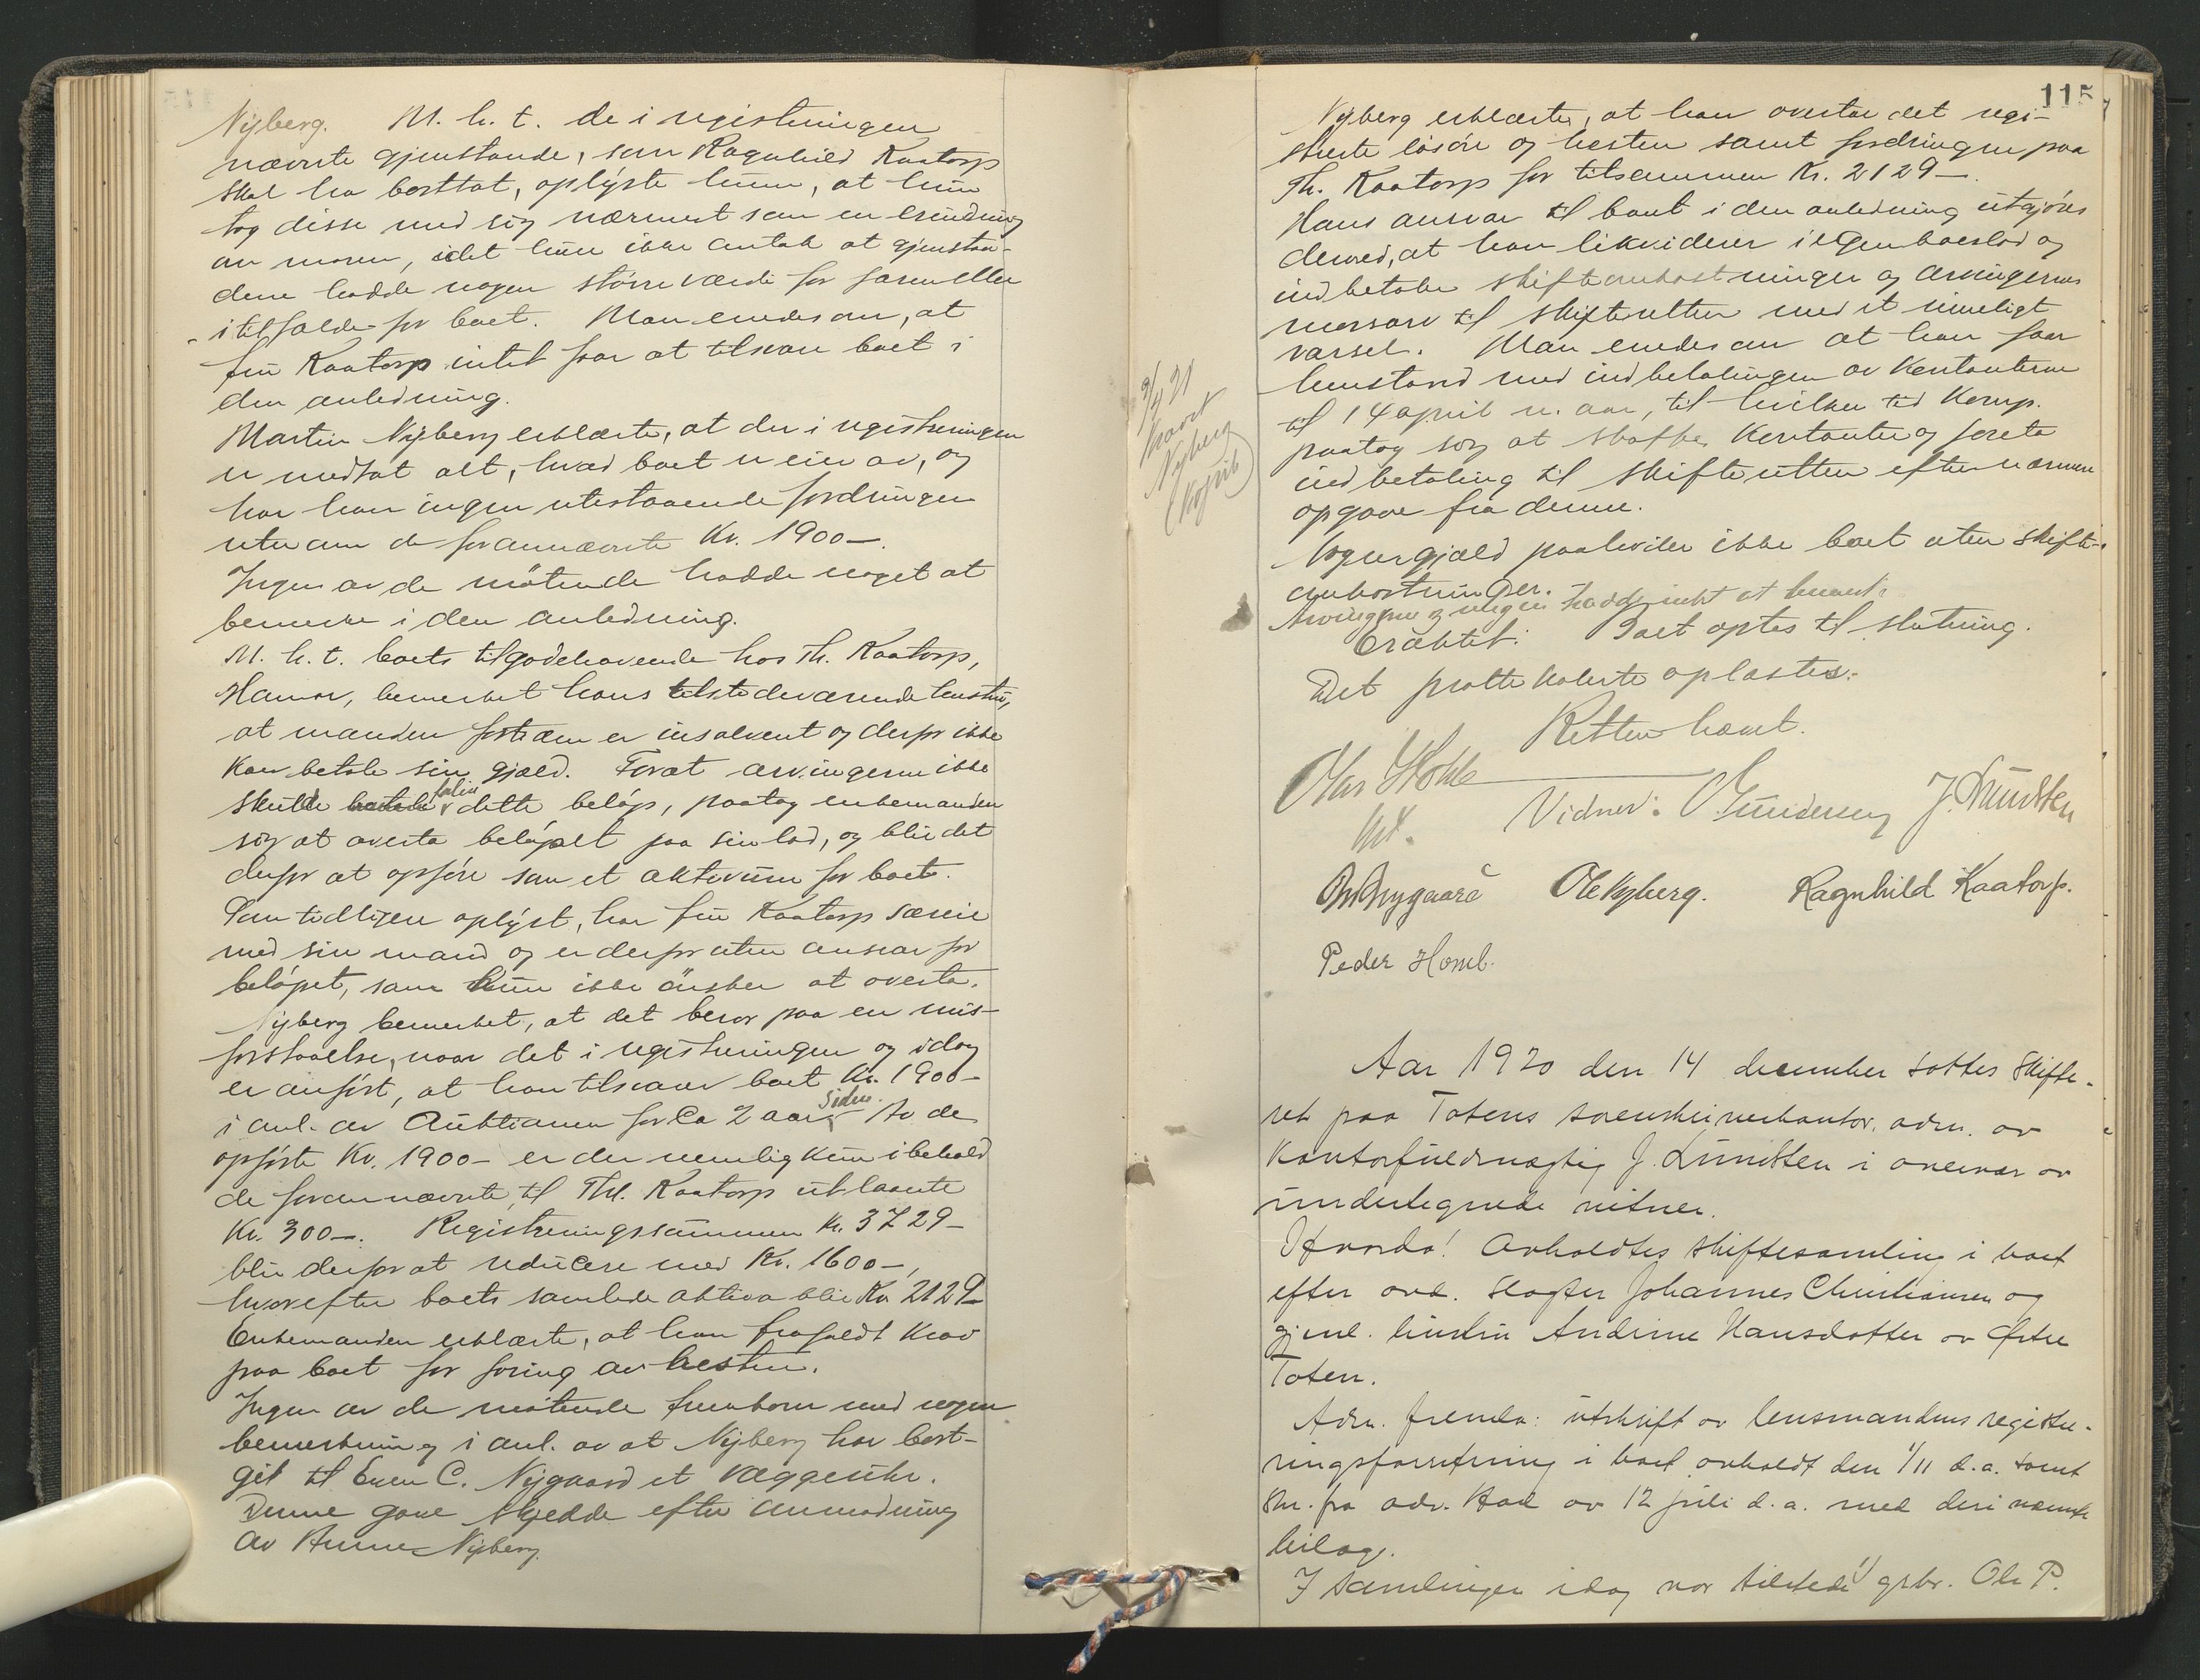 Nyberg. M. h. t. de i registreringen
nævnte gjenstande, som Ragnhild Kaatorp
skal ha borttat, oplyste hun, at hun
tog disse med sig nærmest som en erindring
om moren, idet hun ikke antok at gjenstan-
dene hadde nogen større værdi for faren eller
i tilfælde for boet. Man enedes om, at
fru Kaatorp intet faar at tilsvare boet i
den anledning.
Martin Nyberg erklærte, at der i registreringen
er medtat alt, hvad boet er eier av, og
har han ingen utestaaende fordringer
utenom de forannævnte Kr. 1900—.
Ingen av de møtende hadde noget at
bemerke i den anledning.
M. h. t. boets tilgodehavende hos Th. Kaatorp,
Hamar, bemerket hans tilstedeværende hustru,
at manden fortiden er insolvent og derfor ikke
kan betale sin gjæld. Forat arvingerne ikke
skulde dette beløp, paatog enkemanden
sig at overta beløpet paa sin lod, og blir det
derfor at opføre som et aktivum for boet.
Som tidligere oplyst, har fru Kaatorp særeie
med sin mand og er derfor uten ansvar for
beløpet, som hun ikke ønsker at overta.
Nyberg bemerket, at det beror paa en mis-
forstaaelse, naar det i registreringen og idag
er anført, at han tilsvarer boet Kr. 1900—
i anl. av Auktionen for Ca 2 aar siden. Av de
opførte Kr. 1900— er der nemlig kun i behold
de forannævnte til Th. Kaatorp utlaante
Kr. 300—. Registreringssummen Kr. 3729—
blir derfor at reducere med Kr. 1600—,
hvorefter boets samlede aktiva blir Kr. 2129—
Enkemanden erklærte, at han frafaldt krav
paa boet for foring av hesten.
Ingen av de møtende fremkom med nogen
bemerkning i anl. av at Nyberg har bort-
git til Even C. Nygaard et væggeuhr.
Denne gave skjedde efter anmodning
av Anne Nyberg.
115
Nyberg erklærte, at han overtar det regi-
strerte løsøre og hesten samt fordringen paa
Th. Kaatorp for tilsammen Kr. 2129—.
Hans ansvar til boet i den anledning utgjøres
derved, at han likviderer i egen boeslod og
indbetaler skifteomkostninger og arvingernes
morsarv til skifteretten med et rimeligt
varsel. Man enedes om at han faar
henstand med indbetalingen av kontanterne
til 14 april n. aar, til hvilken tid Komp.
paatog sig at skaffe kontanter og foreta
indbetaling til skifteretten efter nærmere
opgave fra denne.
Nogen gjæld paahviler ikke boet uten skifte-
omkostninger.
Arvingerne og vergen hadde intet at bemerke.
Eraktet: Boet optas til slutning.
Det protokolerte oplæstes.
Retten hævet.
Vidner: Gundersen J. Lundsten
Ole Nyberg. Ragnhild Kaatorp.
Peder Homb.
Nyberg
Aar 1920 den 14 december sattes skifte-
ret paa Totens sorenskriverkontor, adm. av
kontorfuldmægtig J. Lundsten i overvær av
undertegnede vitner.
Hvorda! Avholdtes skiftesamling i boet
efter avd. slagter Johannes Christiansen og
gjenl. hustru Andrine Hansdatter av Østre
Toten.
Adm. fremla: utskrift av lensmandens registre-
ringsforretning i boet avholdt den 1/11 d.a. samt
skr. fra adv. av 12 juli d.a. med deri nævnte
bilag.
I samlingen idag var tilstede 1/ grbr. Ole P.